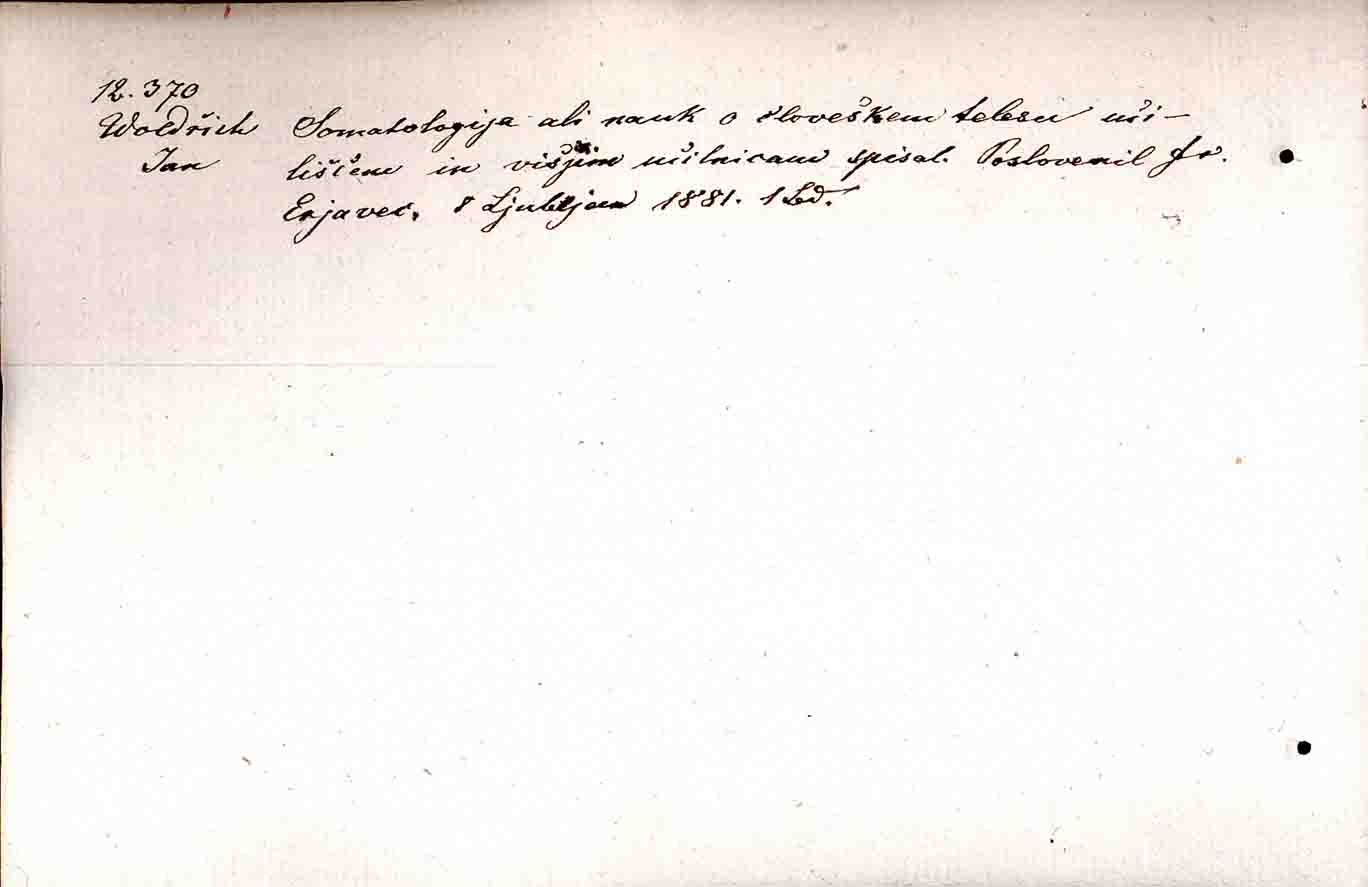 12.370
Woldřich Somatologija ali nauk o človeškem telesu uči-
Jan liščem in višjim učilnicam spisal. Poslovenil Fr.
Erjavec. 8 Ljubljana 1881. 1 Bd.